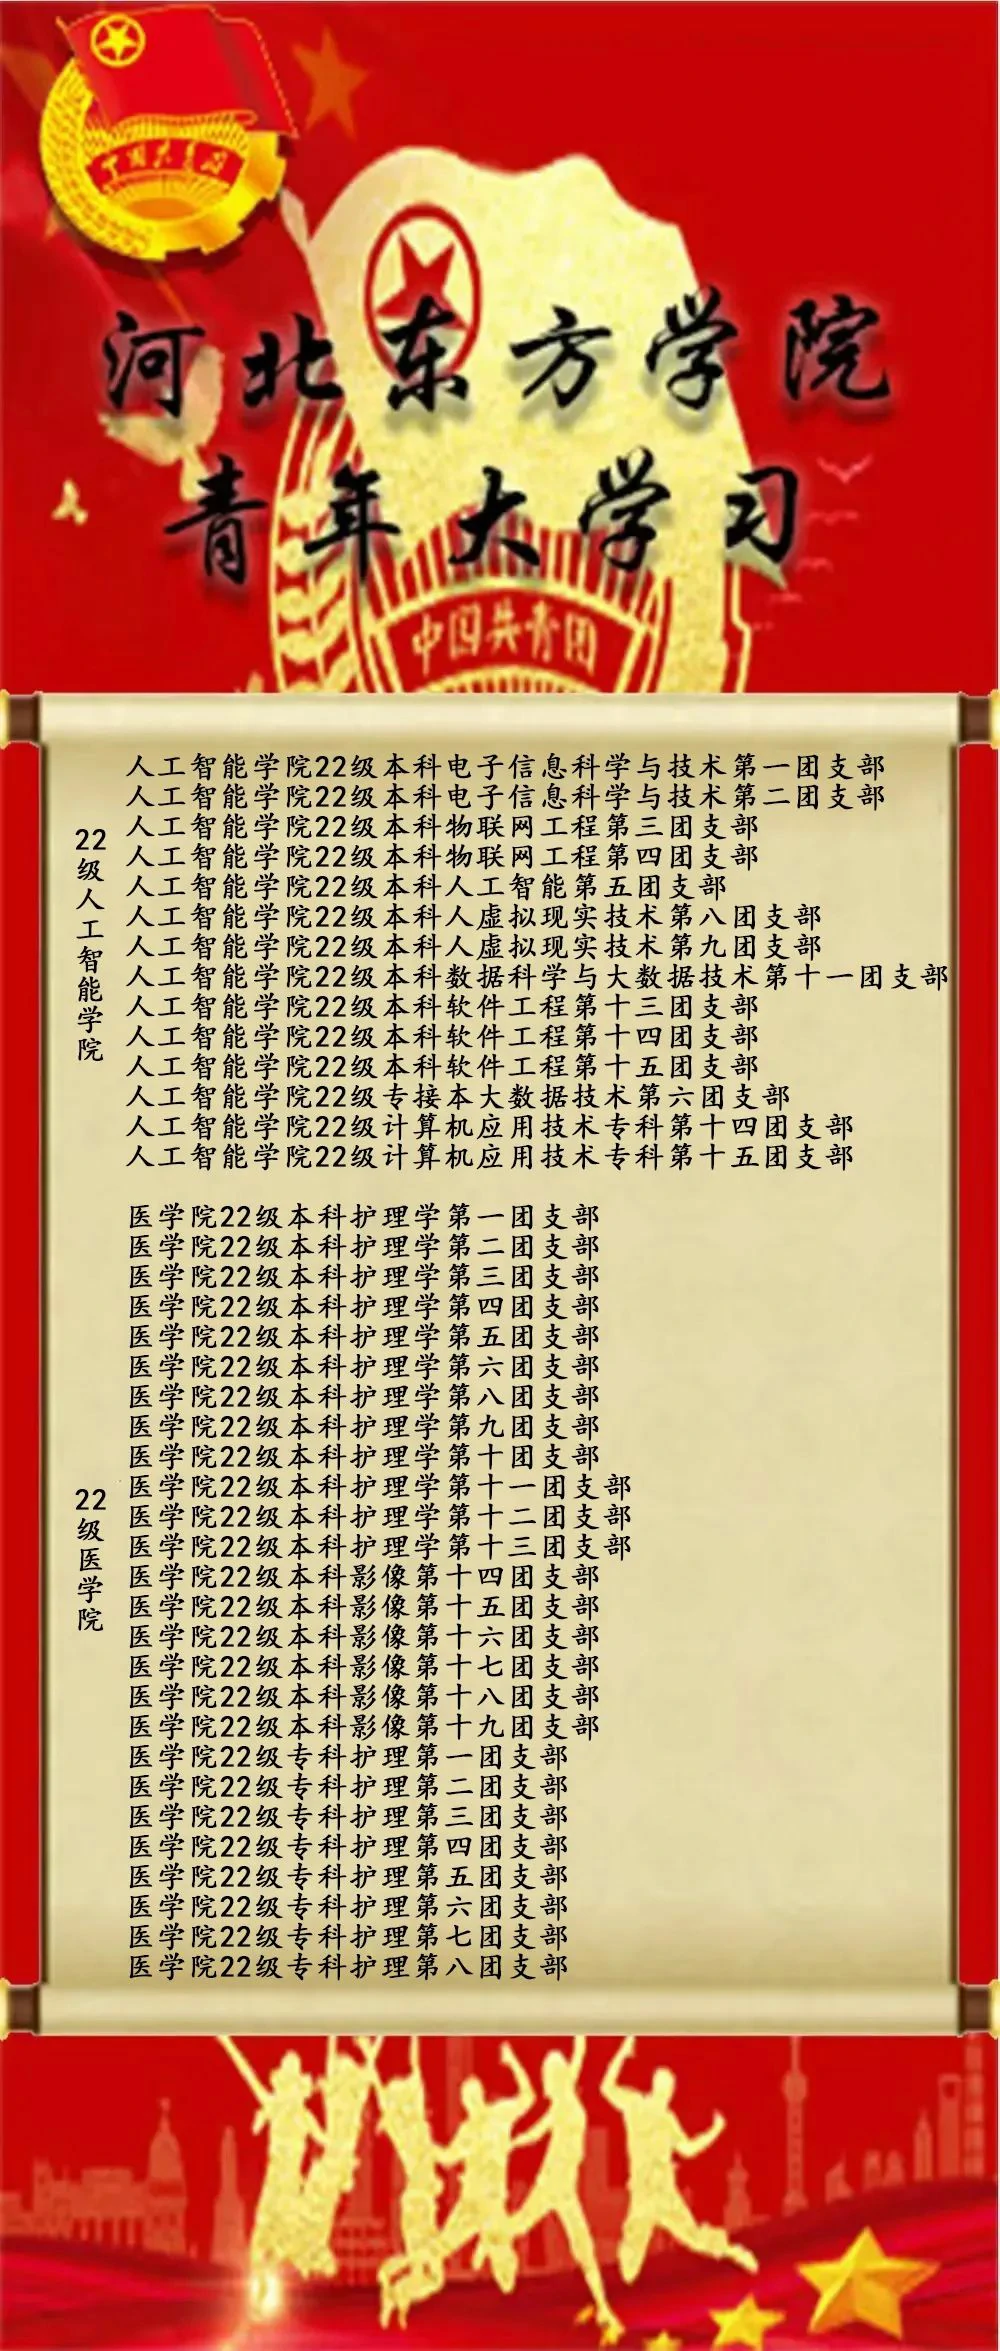 中国共青团
河北东方学院
青年大学习
中国共青团
22级人工智能学院
人工智能学院22级本科电子信息科学与技术第一团支部
人工智能学院22级本科电子信息科学与技术第二团支部
人工智能学院22级本科物联网工程第三团支部
人工智能学院22级本科物联网工程第四团支部
人工智能学院22级本科人工智能第五团支部
人工智能学院22级本科人虚拟现实技术第八团支部
人工智能学院22级本科人虚拟现实技术第九团支部
人工智能学院22级本科数据科学与大数据技术第十一团支部
人工智能学院22级本科软件工程第十三团支部
人工智能学院22级本科软件工程第十四团支部
人工智能学院22级本科软件工程第十五团支部
人工智能学院22级专接本大数据技术第六团支部
人工智能学院22级计算机应用技术专科第十四团支部
人工智能学院22级计算机应用技术专科第十五团支部
22级医学院
医学院22级本科护理学第一团支部
医学院22级本科护理学第二团支部
医学院22级本科护理学第三团支部
医学院22级本科护理学第四团支部
医学院22级本科护理学第五团支部
医学院22级本科护理学第六团支部
医学院22级本科护理学第八团支部
医学院22级本科护理学第九团支部
医学院22级本科护理学第十团支部
医学院22级本科护理学第十一团支部
医学院22级本科护理学第十二团支部
医学院22级本科护理学第十三团支部
医学院22级本科影像第十四团支部
医学院22级本科影像第十五团支部
医学院22级本科影像第十六团支部
医学院22级本科影像第十七团支部
医学院22级本科影像第十八团支部
医学院22级本科影像第十九团支部
医学院22级专科护理第一团支部
医学院22级专科护理第二团支部
医学院22级专科护理第三团支部
医学院22级专科护理第四团支部
医学院22级专科护理第五团支部
医学院22级专科护理第六团支部
医学院22级专科护理第七团支部
医学院22级专科护理第八团支部